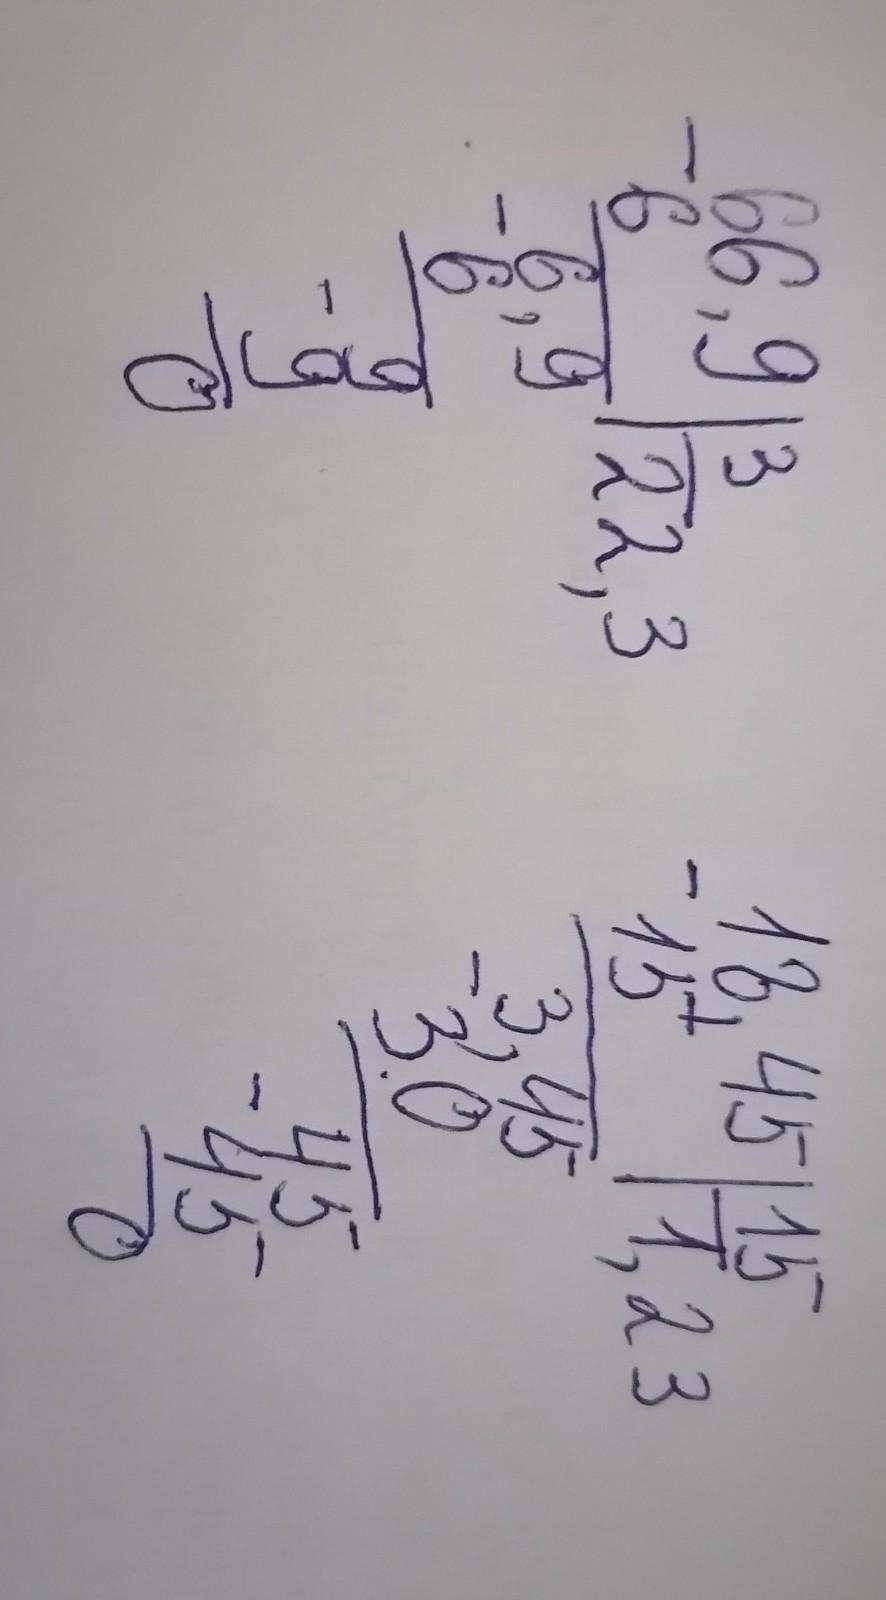 - 66,9 | 3
6 | 22,3
- 6,9
6
- 9
9
0
- 18,45 | 15
15 | 1,23
- 3,45
3.0
- 45
45
0